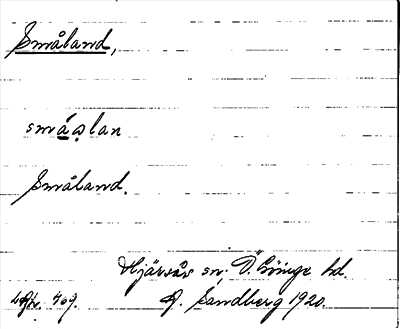 Småland,
småslan
Småland.
Hjärsås sn; Ö. Göinge hd.
409. A. Sandberg 1920.